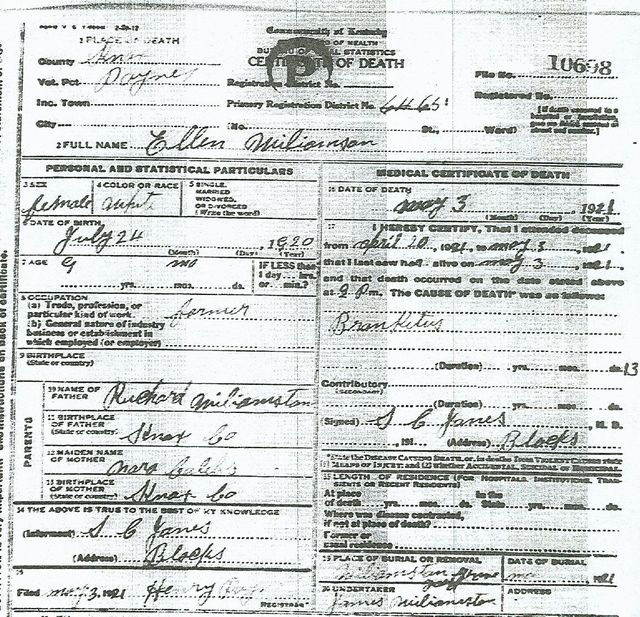 Commonwealth of Kentucky
1 PLACE OF DEATH
County Knox
BUREAU OF VITAL STATISTICS
CERTIFICATE OF DEATH
P
Vot. Pct. Payne
Registration District No.
File No. 10698
Registered No.
Inc. Town
Primary Registration District No. 6465
City
(No. St., Ward)
[If death occurred in a hospital or institution,
2 FULL NAME Ellen Miliamson
PERSONAL AND STATISTICAL PARTICULARS
3 SEX
female
4 COLOR OR RACE
White
5 SINGLE, MARRIED WIDOWED, OR DIVORCED
(Write the word)
6 DATE OF BIRTH
July 24, 1920
(Month) (Day) (Year)
7 AGE 9 mo
yrs. mos. ds.
IF LESS than
1 day, hrs.
or min.?
8 OCCUPATION
(a) Trade, profession, or
particular kind of work. farmer
(b) General nature of industry
business or establishment in
which employed (or employer)
9 BIRTHPLACE
(State or country)
PARENTS
10 NAME OF
FATHER Richard Miliamston
11 BIRTHPLACE
OF FATHER
(State or country) Knox Co
12 MAIDEN NAME
OF MOTHER
13 BIRTHPLACE
OF MOTHER
(State or country) Knox Co
14 THE ABOVE IS TRUE TO THE BEST OF MY KNOWLEDGE
(Informant) S C Janes
(Address) Blacks
15
Filed may 3, 1921 Henry
REGISTRAR
MEDICAL CERTIFICATE OF DEATH
16 DATE OF DEATH
may 3, 1921
(Month) (Day) (Year)
17 I HEREBY CERTIFY, That I attended deceased
from april 20, 1921, to may 3, 1921,
that I last saw her alive on may 3, 1921,
and that death occurred on the date stated above
at 9 Pm. The CAUSE OF DEATH was as follows:
Bronkitus
(Duration) yrs. mos. ds. 13
Contributory
(SECONDARY)
(Duration) yrs. mos. ds.
(Signed) S C Janes M. D.
, 191 (Address) Blacks
*State the DISEASE CAUSING DEATH, or, in deaths from VIOLENT
MEANS OF INJURY; and (2) whether ACCIDENTAL, SUICIDAL or HOMICIDAL.
18 LENGTH OF RESIDENCE (FOR HOSPITALS, INSTITUTIONS, TRANSIENTS OR RECENT RESIDENTS)
At place In the
of death yrs. mos. ds. State yrs. mos. ds.
Where was disease contracted,
if not at place of death?
Former or
usual residence
19 PLACE OF BURIAL OR REMOVAL
Miliamston
DATE OF BURIAL
1921
20 UNDERTAKER
James Miliamston
ADDRESS